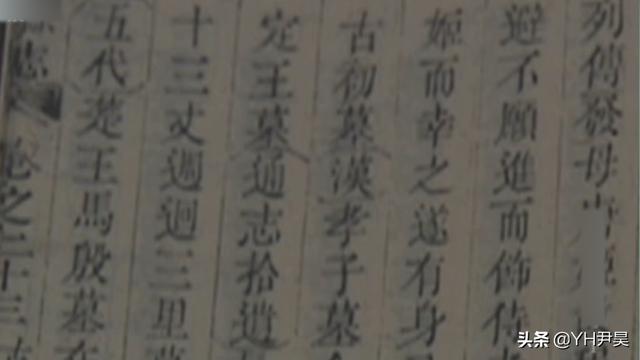 列傳發母
避不願進而飾侍
姬而幸之遂有身
古初墓漢孝子墓
定王墓通志拾遺
十三丈週迴三里
五代楚王馬殷墓在
志 卷之二十三
头条 @YH尹昊